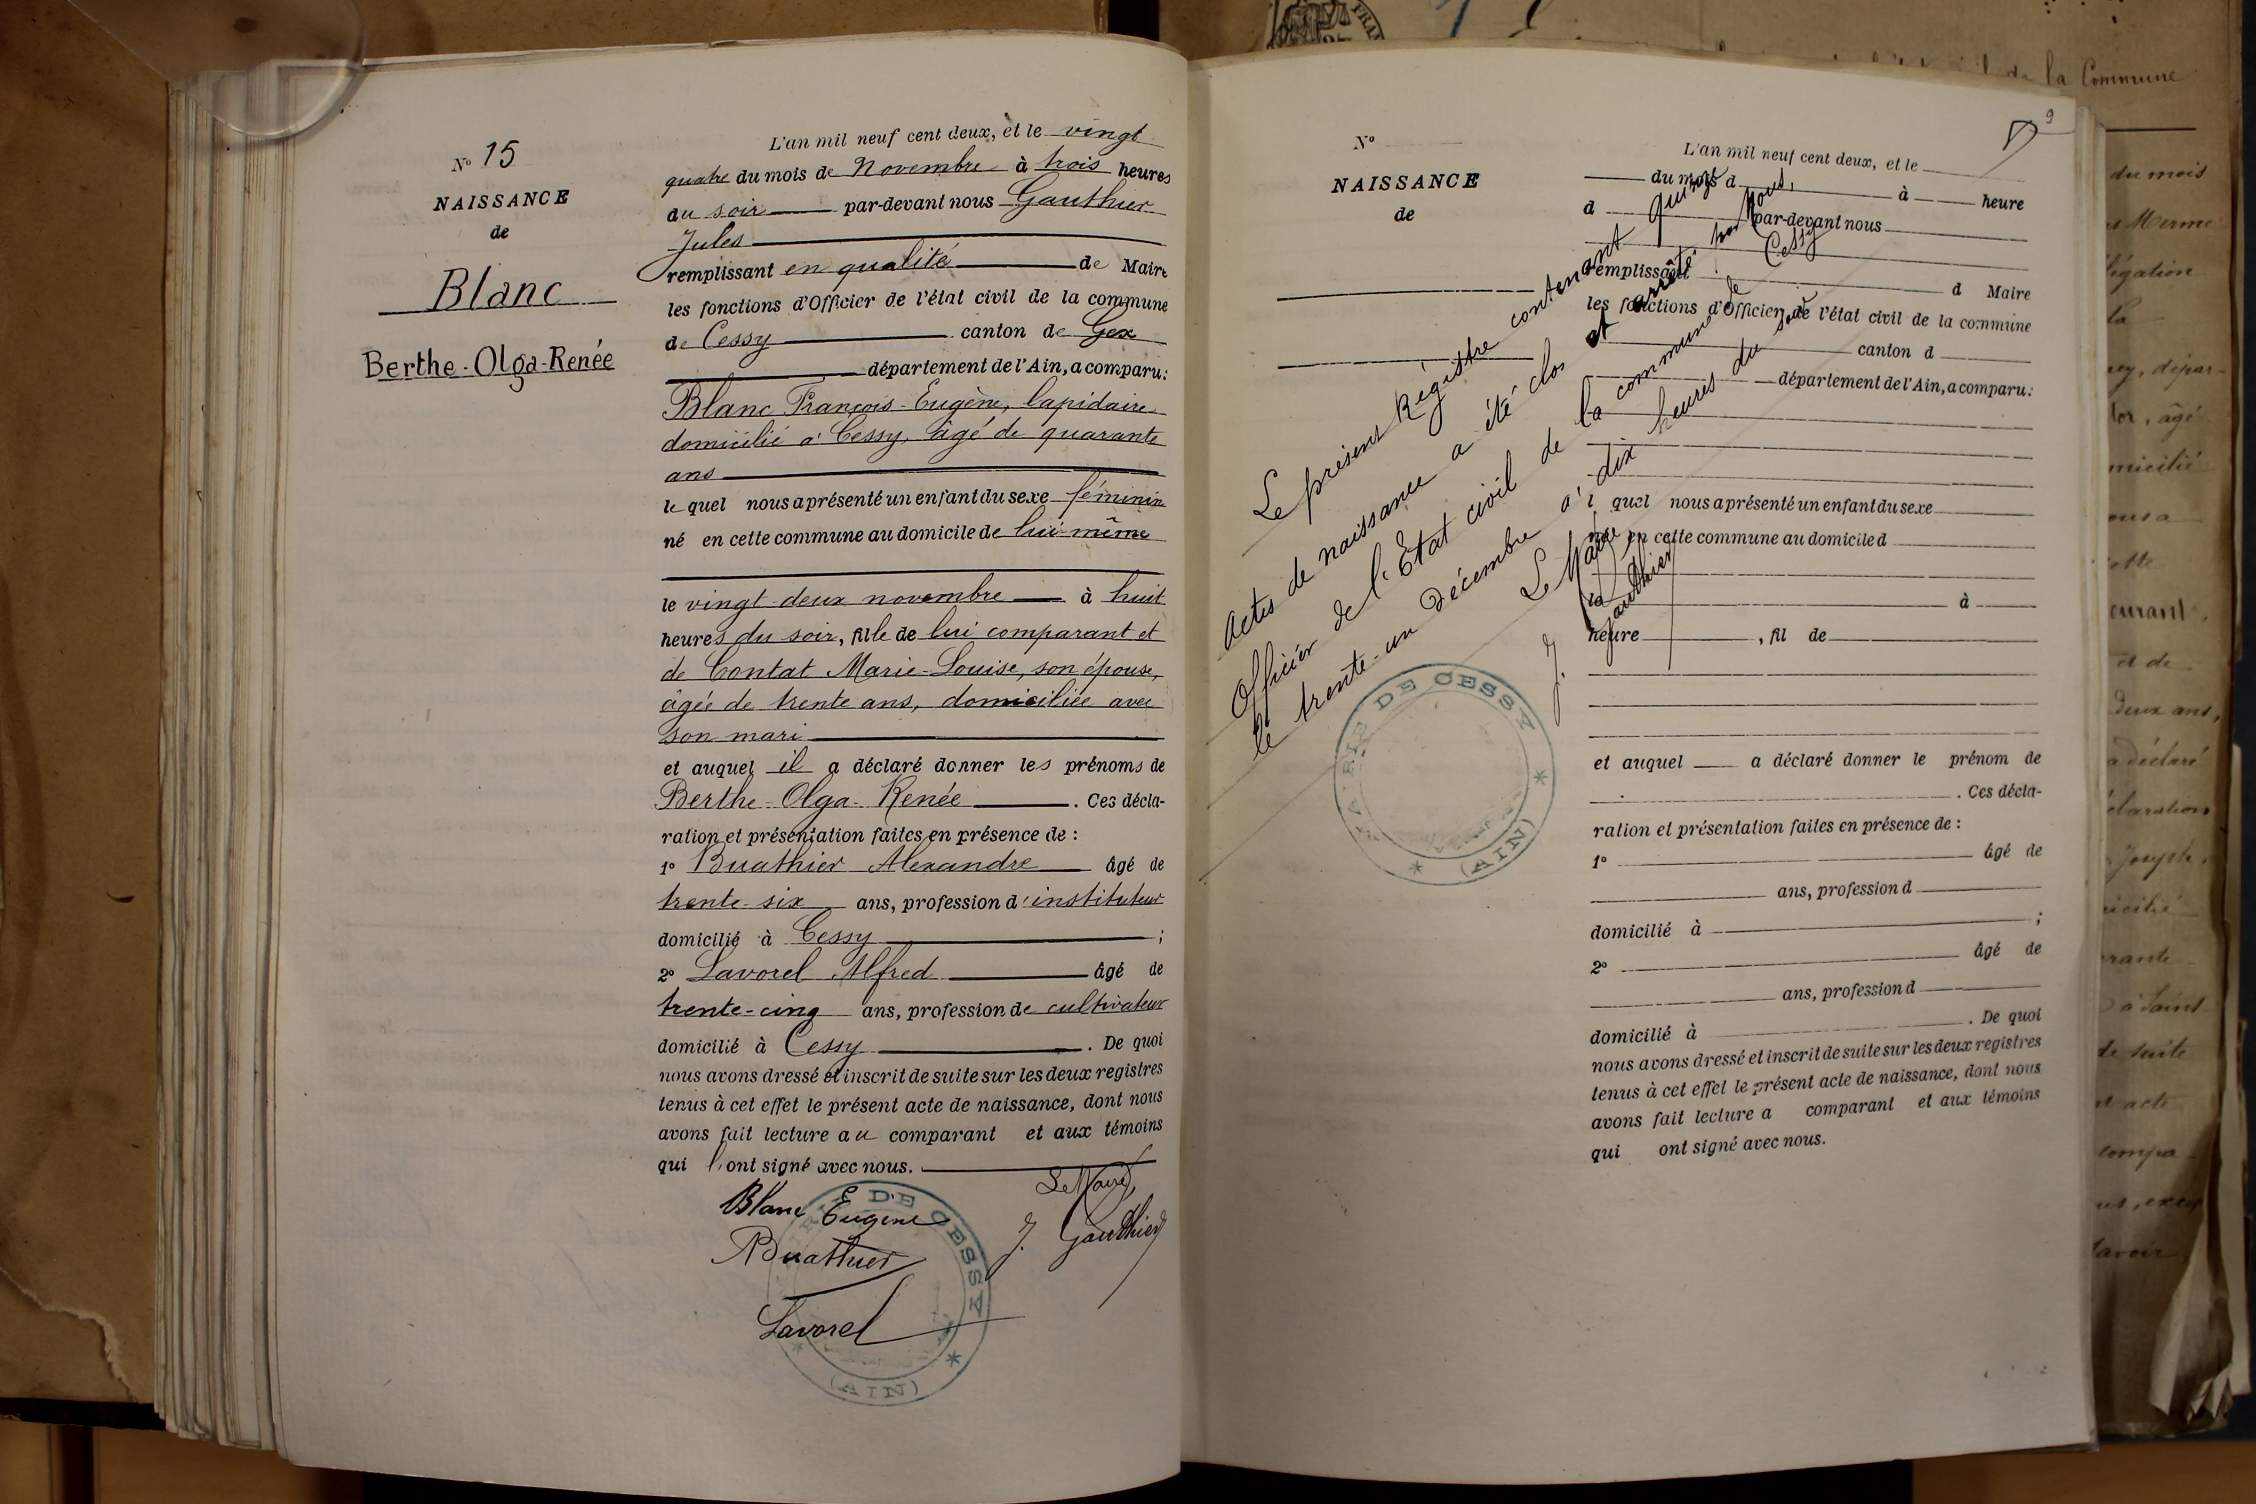 N° 15
NAISSANCE
de
Blanc
Berthe-Olga-Renée
L'an mil neuf cent deux, et le vingt
quatre du mois de Novembre à trois heures
du soir par-devant nous Gauthier
Jules
remplissant en qualité de Maire
les fonctions d'Officier de l'état civil de la commune
de Cessy canton de Gex
département de l'Ain, a comparu:
Blanc François-Eugène, lapidaire
domicilié à Cessy, âgé de quarante
ans
le quel nous a présenté un enfant du sexe féminin
né en cette commune au domicile de lui-même
le vingt-deux novembre à huit
heures du soir, fille de lui comparant et
de Contat Marie-Louise, son épouse,
âgée de trente ans, domiciliée avec
son mari
et auquel il a déclaré donner les prénoms de
Berthe-Olga-Renée. Ces décla-
ration et présentation faites en présence de :
1° Buathier Alexandre âgé de
trente-six ans, profession d'instituteur
domicilié à Cessy ;
2° Lavorel Alfred âgé de
trente-cinq ans, profession de cultivateur
domicilié à Cessy. De quoi
nous avons dressé et inscrit de suite sur les deux registres
tenus à cet effet le présent acte de naissance, dont nous
avons fait lecture au comparant et aux témoins
qui l'ont signé avec nous.
Le Maire,
Blanc Eugène
J. Gauthier
ABuathier
Lavorel
MAIRIE DE CESSY
(AIN)
9
N°
NAISSANCE
de
L'an mil neuf cent deux, et le
du mois d à heure
d par-devant nous
remplissant d Maire
les fonctions d'Officier de l'état civil de la commune
canton d
département de l'Ain, a comparu:
quel nous a présenté un enfant du sexe
né en cette commune au domicile d
le à
heure , fil de
et auquel a déclaré donner le prénom de
. Ces décla-
ration et présentation faites en présence de :
1° âgé de
ans, profession d
domicilié à ;
2° âgé de
ans, profession d
domicilié à . De quoi
nous avons dressé et inscrit de suite sur les deux registres
tenus à cet effet le présent acte de naissance, dont nous
avons fait lecture a comparant et aux témoins
qui ont signé avec nous.
Le présent Régistre contenant quinze
actes de naissance a été clos et arrêté par Nous,
Officier de l'État civil de la commune de Cessy
le trente-un Décembre à dix heures du soir
Le Maire
J. Gauthier
MAIRIE DE CESSY
(AIN)
de la Commune
du mois
Merme
la
dépar-
âgé
ette
et de
deux ans,
a déclaré
Joseph
à Saint
de suite
acte
compa
savoir